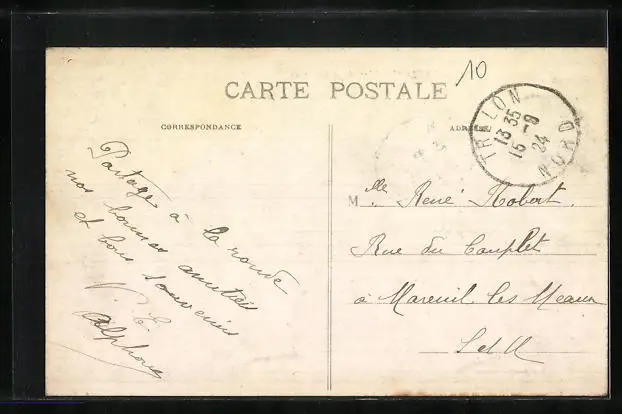 10
CARTE POSTALE
CORRESPONDANCE
ADRESSE
TRELON
13 35
15 - 9
24
NORD
Partage à la ronde
nos bonnes amitiés
et bons souvenirs
V. C.
Alphonse
Mlle René Robert.
Rue du Couplet
à Mareuil les Meaux
S et M